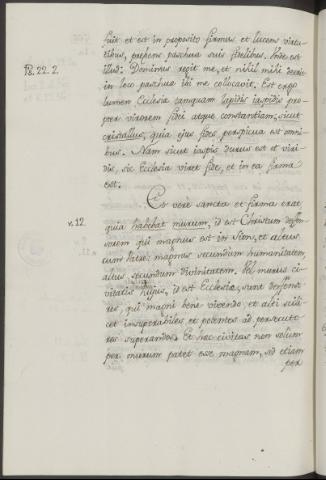 fuit et est in proposito firmus et lucens virtu-
tibus, præbens pascua suis fidelibus. Unde est
Ps. 22. 2. illud: Dominus regit me, et nihil mihi deerit
in loco pascuæ ibi me collocavit. Est ergo
lumen Ecclesiæ tamquam lapidis iaspidis pro-
pter virorem fidei atque constantiam, sicut
cristallus, quia ejus fides, perspicua est omni-
bus. Nam sicut iaspis durus est et viri-
dis, sic Ecclesia viret fide, et in ea firma
est.
Et vere sancta et firma erat
v. 12. quia habebat murum, id est Christum defen-
sorem qui magnus est in Sion, et altus
cum Patre: magnus secundum humanitatem,
altus secundum Divinitatem. Vel murus ci-
vitatis hujus, id est Ecclesiæ, sunt defenso-
res, qui magni bene vivendo, et alti scili-
cet insuperabiles et potentes ad persecuto-
res superandos. Et hæc civitas non solum
per murum patet esse magnam, sed etiam
per